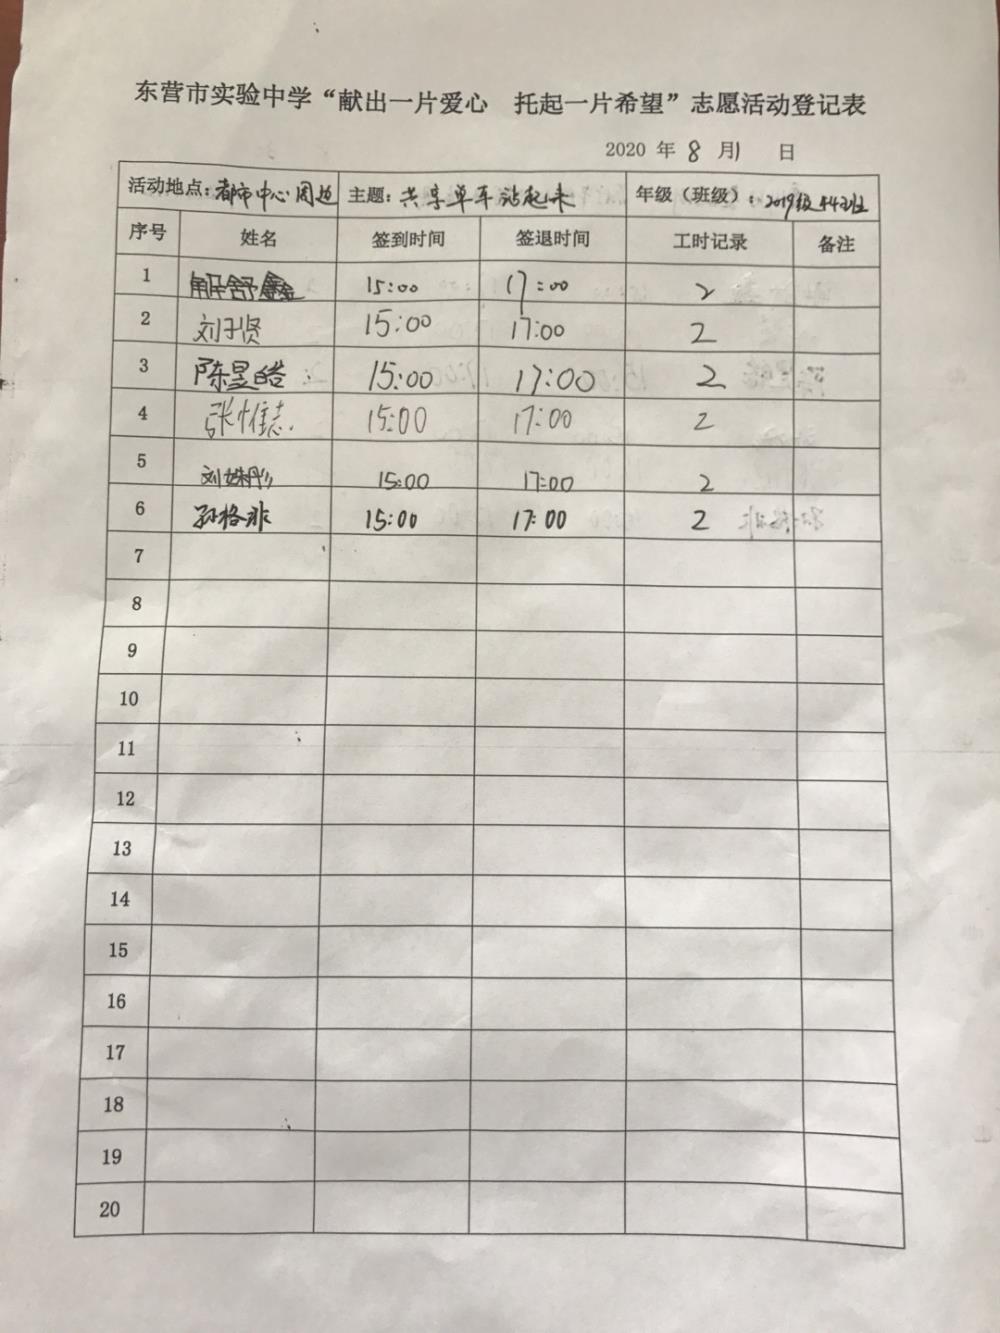 东营市实验中学“献出一片爱心 托起一片希望”志愿活动登记表
2020 年 8 月 1 日
活动地点：都市中心周边 主题：共享单车站起来 年级（班级）：2019级44班
序号 姓名 签到时间 签退时间 工时记录 备注
1 解舒鑫 15:00 17:00 2
2 刘子贤 15:00 17:00 2
3 陈昱皓 15:00 17:00 2
4 张惟志 15:00 17:00 2
5 刘姝彤 15:00 17:00 2
6 孙格非 15:00 17:00 2
7
8
9
10
11
12
13
14
15
16
17
18
19
20